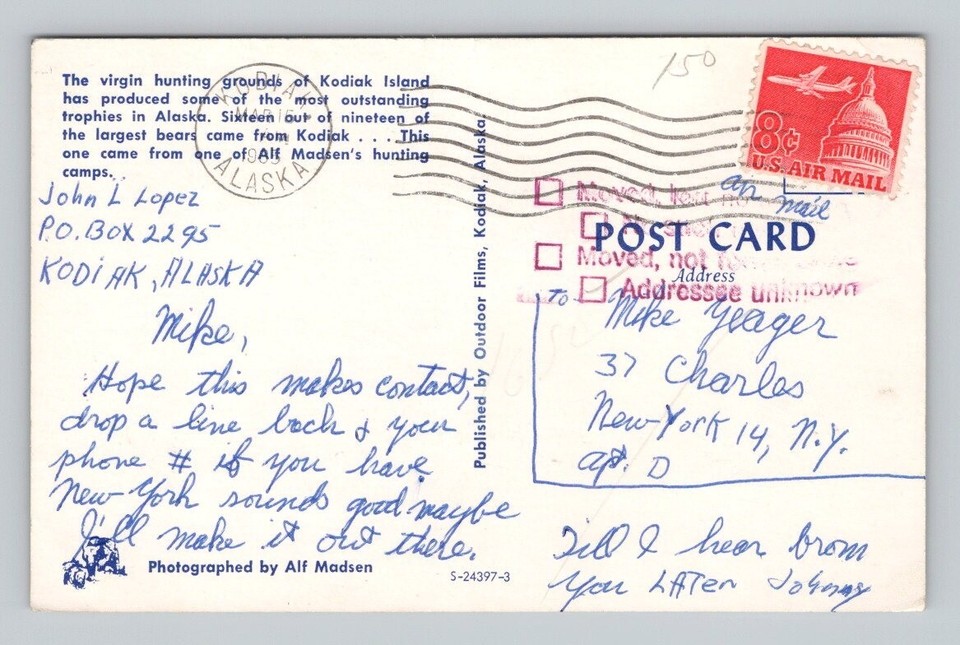 The virgin hunting grounds of Kodiak Island
has produced some of the most outstanding
trophies in Alaska. Sixteen out of nineteen of
the largest bears came from Kodiak . . . . This
one came from one of Alf Madsen's hunting
camps.
KODIAK
MAR 15
ALASKA
150
8¢
U.S. AIR MAIL
air
mail
John L Lopez
P.O. BOX 2295
KODIAK, ALASKA
Mike,
Hope this makes contact,
drop a line back & your
phone # if you have
New York sounds good maybe
I'll make it out there.
Photographed by Alf Madsen
S-24397-3
Published by Outdoor Films, Kodiak, Alaska.
Moved, left no
No such
Moved, not
Addressee unknown
POST CARD
Address
to
Mike Yeager
37 Charles
New-York 14, N.Y.
apt. D
Till I hear from
you LATER Johnny